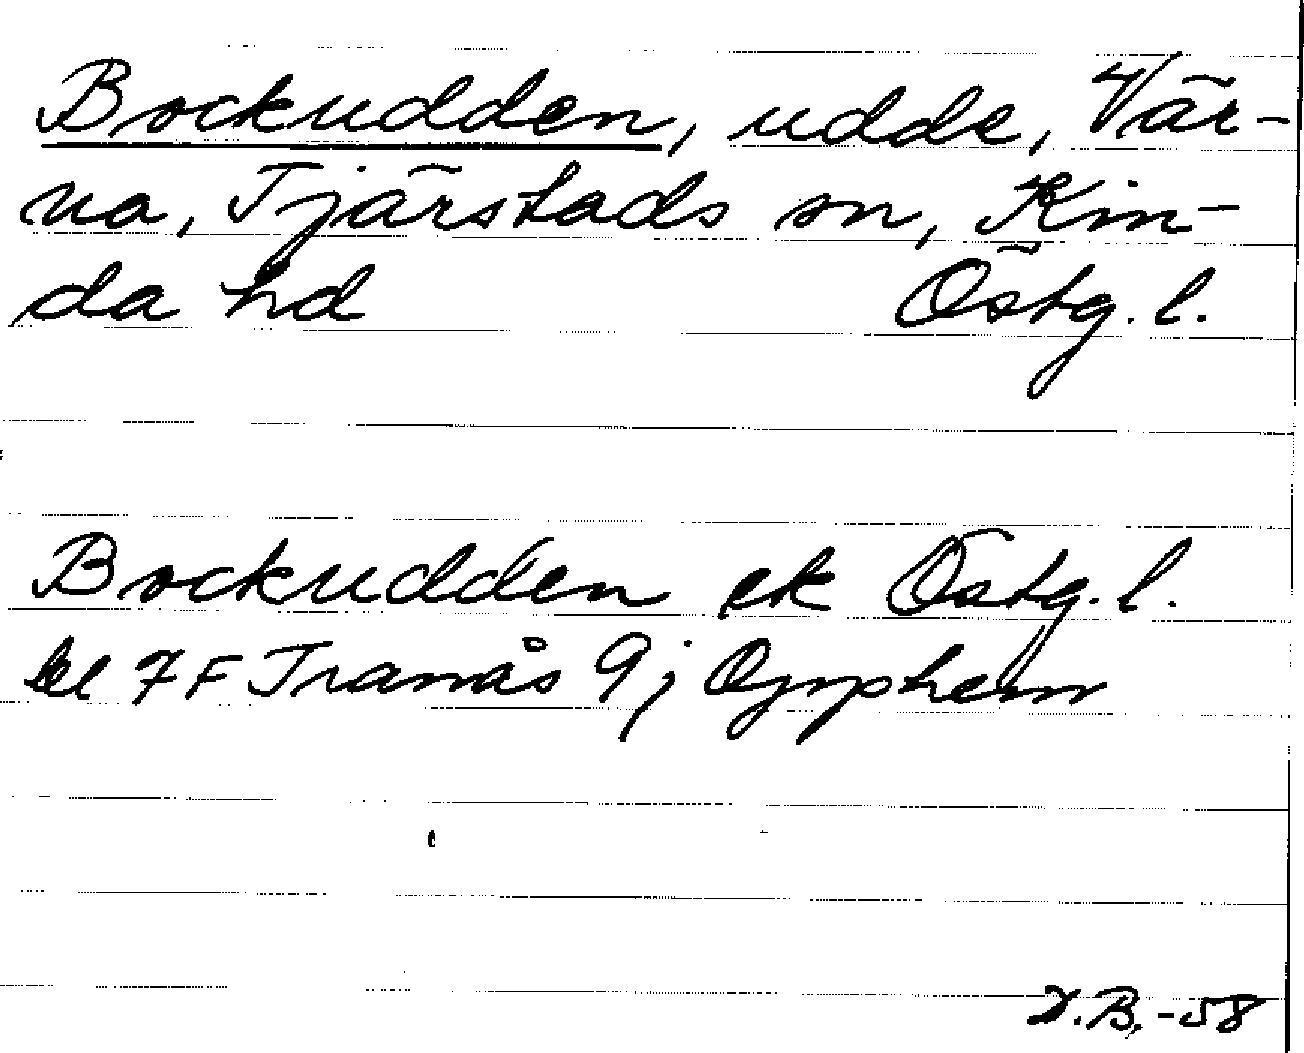 Bockudden, udde, Vär-
na, Tjärstads sn, Kin-
da hd Östg. l.
Bockudden ek Östg. l.
bl 7F Tranås 9j Opphem
D.B.-58